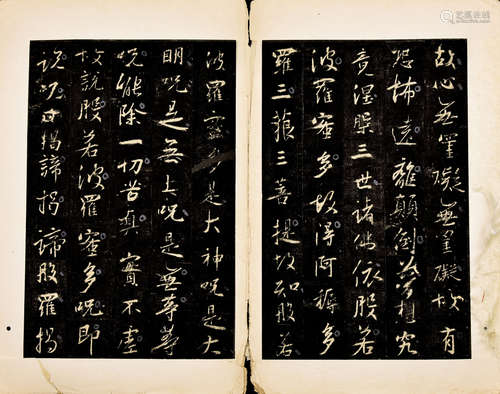 故心無罣礙無罣礙故有
恐怖遠離顛倒夢想究
竟涅槃三世諸佛依般若
波羅蜜多故得阿耨多
羅三藐三菩提故知般若
波羅蜜多是大神咒是大
明咒是無上咒是無等等
咒能除一切苦真實不虛
故說般若波羅蜜多咒即
說咒曰揭諦揭諦般羅揭